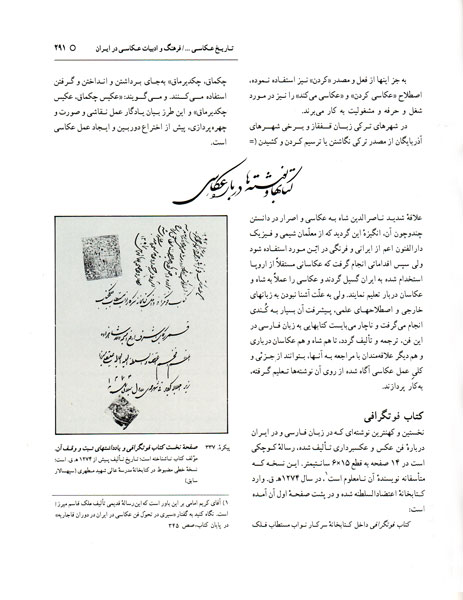 تاریخ عکاسی .../ فرهنگ و ادبیات عکاسی در ایران ○ ۲۹۱
به جز اینها از فعل و مصدر «کردن» نیز استفاده نموده،
اصطلاح «عکاسی کردن» و «عکاسی می‌کند» را نیز در مورد
شغل و حرفه و مشغولیت به کار می‌برند.
در شهرهای ترکی زبان قفقاز و برخی شهرهای
آذربایگان از مصدر ترکی نگاشتن یا ترسیم کردن و کشیدن (=
چکماق، چکدیرماق) به‌جای برداشتن و انداختن و گرفتن
استفاده می‌کنند. و می‌گویند: «عکیس چکماق، عکیس
چکدیرماق» و این طرز بیان یادگار عمل نقاشی و صورت و
چهره‌پردازی، پیش از اختراع دوربین و ایجاد عمل عکاسی
است.
کتابها و نوشته‌ها درباره عکاسی
علاقهٔ شدید ناصرالدین شاه به عکاسی و اصرار در دانستن
چندوچون آن، انگیزهٔ این گردید که از معلّمان شیمی و فیزیک
دارالفنون اعم از ایرانی و فرنگی در این مورد استفاده شود
ولی سپس اقداماتی انجام گرفت که عکاسانی مستقلاً از اروپا
استخدام شده به ایران گسیل گردند و عکاسی را عملاً به شاه و
عکاسان دربار تعلیم نمایند. ولی به علّت آشنا نبودن به زبانهای
خارجی و اصطلاحهای علمی، پیشرفت آن بسیار به کُندی
انجام می‌گرفت و ناچار می‌بایست کتابهایی به زبان فارسی در
این فن، ترجمه و تألیف گردد، تا هم شاه و هم عکاسان درباری
و هم دیگر علاقه‌مندان با مراجعه به آنها، بتوانند از جزئی و
کلیِ عمل عکاسی آگاه شده از روی آن نوشته‌ها تعلیم گرفته،
به‌کار پردازند.
کتاب فوتگرافی
نخستین و کهنترین نوشته‌ای که در زبان فارسی و در ایران
دربارهٔ فن عکس و عکسبرداری تألیف شده، رسالهٔ کوچکی
است در ۱۴ صفحه به قطع ۱۵×۶ سانتیمتر. این نسخه که
متأسفانه نویسندهٔ آن نامعلوم است۱، در سال ۱۲۷۴ ه‍.ق. وارد
کتابخانهٔ اعتضادالسلطنه شده و در پشت صفحهٔ اول آن آمده
است:
کتاب فوتگرافی داخل کتابخانهٔ سرکار نواب مستطاب فلک
پیکرهٔ ۲۳۷: صفحهٔ نخست کتاب فوتگرافی و یادداشتهای ثبت و وقف آن.
مؤلف کتاب ناشناخته است، تاریخ تألیف پیش از ۱۲۷۴ ه‍.ق. است؛
نسخهٔ خطی مضبوط در کتابخانهٔ مدرسهٔ عالی شهید مطهری (سپهسالار
سابق)
۱) آقای کریم امامی بر این باور است که این رسالهٔ قدیمی تألیف ملک قاسم میرزا
است. نگاه کنید به گفتار «سیری در تحوّل فن عکاسی در ایران در دوران قاجاریه»
در پایان کتاب، صص ۳۴۵